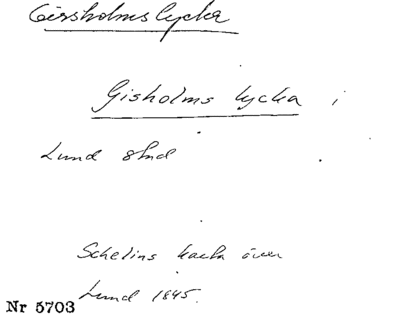 Girsholms lycka
Gisholms lycka i
Lund stad
Schelins karta över
Lund 1845.
Nr 5703